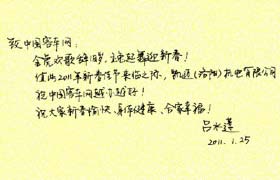 致中国客车网:
金虎欢歌辞旧岁, 玉兔起舞迎新春!
值此2011年新春佳节来临之际, 凯迈(洛阳)机电有限公司
祝中国客车网越办越好!
祝大家新春愉快、身体健康、合家幸福!
吕水莲
2011.1.25